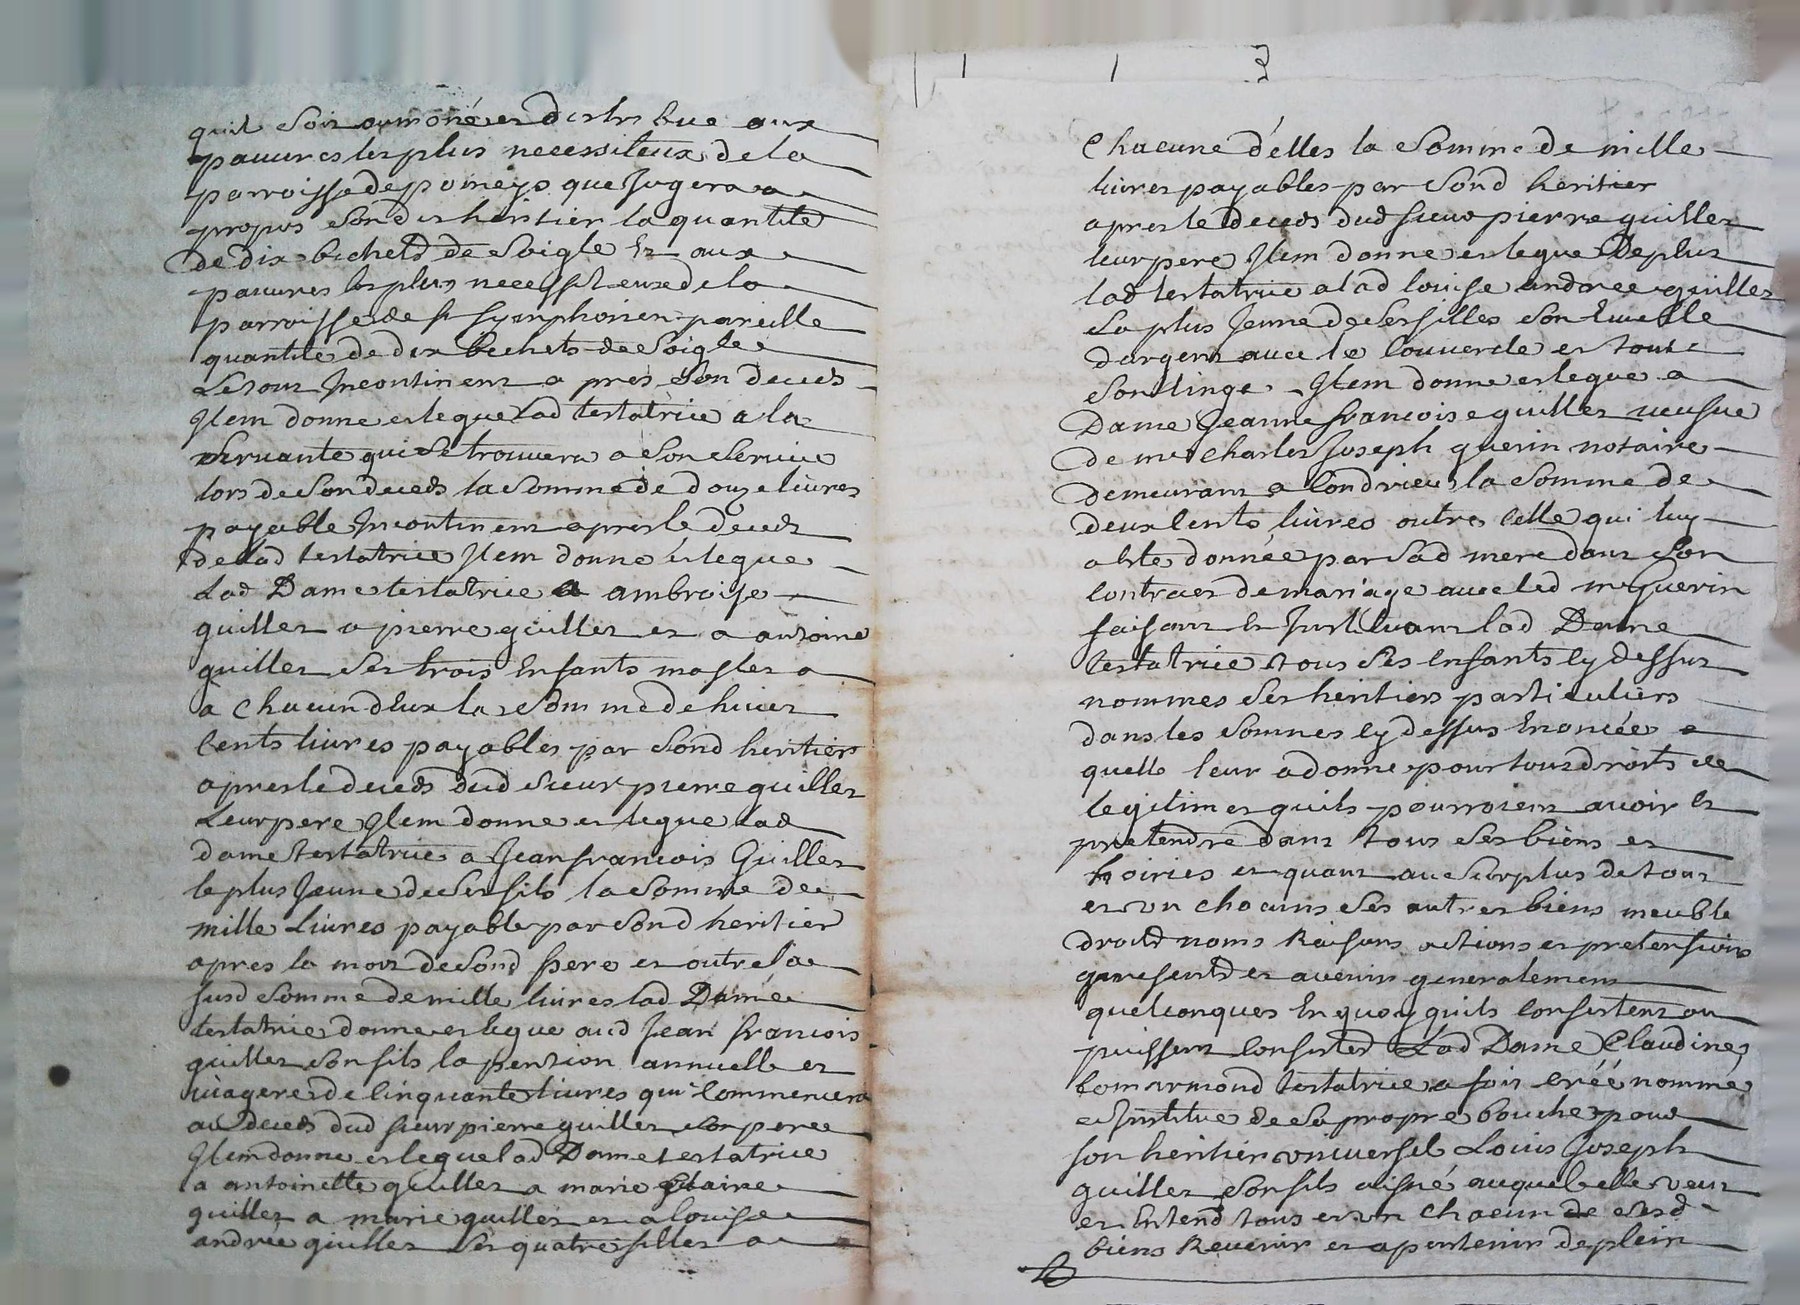 quil soit aumoné et distribue aux
pauvres les plus necessiteux de la
parroisse de pomeys que Jugera a
propos sond heritier la quantite
de dix bichetd de soigle Et aux
pauvres les plus necessiteux de la
parroisse de st symphorien pareille
quantite de dix bichets de soigle
Le tout Incontinent apres son deceds
Item donne et legue lad testatrice a la
servante qui se trouvera a son service
lors de son deceds la somme de douze livres
payable Incontinent apres le deceds
de lad testatrice Item donne et legue
Lad Dame testatrice a ambroise
guillet a pierre guillet et a antoine
guillet ses trois Enfants masles a
a Chacun dEux la somme de huict
Cents livres payables par sond heritier
apres le deceds dud sieur pierre guillet
Leur pere Item donne et legue lad
dame testatrice a Jean francois Guillet
le plus Jeune de ses fils la somme de
mille Livres payable par sond heritier
apres la mort de sond pere et outre la
susd somme de mille livres lad Dame
testatrice donne et legue aud Jean francois
guillet son fils la pention annuelle et
viagere de Cinquante livres qui Commencera
au deceds dud sieur pierre guillet son pere
Item donne et legue lad Dame testatrice
a antoinette guillet a marie Claire
guillet a marie guillet et a louise
andree guillet ses quatre filles a
3
Chacune d'elles la somme de mille
livres payables par sond heritier
apres le deceds dud sieur pierre guillet
leur pere Item donne et legue De plus
lad testatrice a lad louise andree guillet
la plus Jeune de ses filles son Ecuelle
dargent avec le Couvercle et tout
son linge Item donne et legue a
Dame Jeanne francoise guillet veufue
de me Charles Joseph guerin notaire
demeurant a Condrieu la somme de
deux Cents livres outre Celle qui luy
a ete donnée par sad mere dans son
Contract de mariage avec led me Guerin
faisant et Instituant lad Dame
testatrice tous ses Enfants Cy dessus
nommes ses heritiers particuliers
dans les sommes Cy dessus Enoncées
quelle leur a donne pour tous droits de
legitimes quils pourroient avoir et
pretendre dans tous ses biens et
hoiries et quant au surplus de tous
et un chacuns ses autres biens meuble
droitd noms Raisons actions et pretensions
presentd et avenir generalement
quelconques En quoy quils Consistent ou
puissent Consister Lad Dame Claudine
Comarmond testatrice a fait créé nommé
et Institue de sa propre bouche pour
son heritier vniuersel Louis Joseph
guillet son fils aisné auquel elle veut
et Entend tous et un chacun de sesd
biens Revenir et apartenir de plein